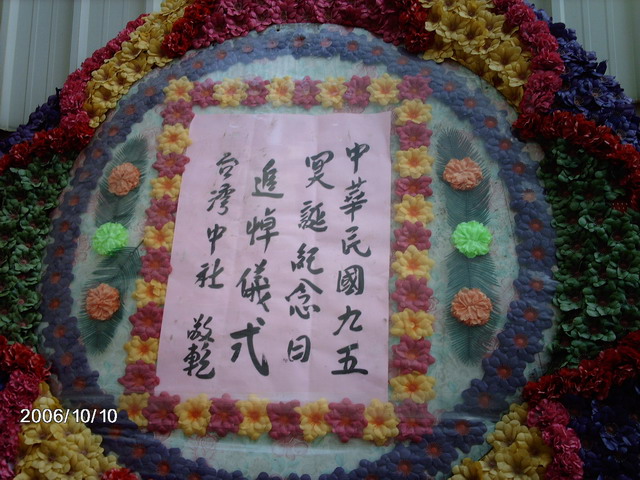 中華民國九五
冥誕紀念日
追悼儀式
台灣中社 敬輓
2006/10/10